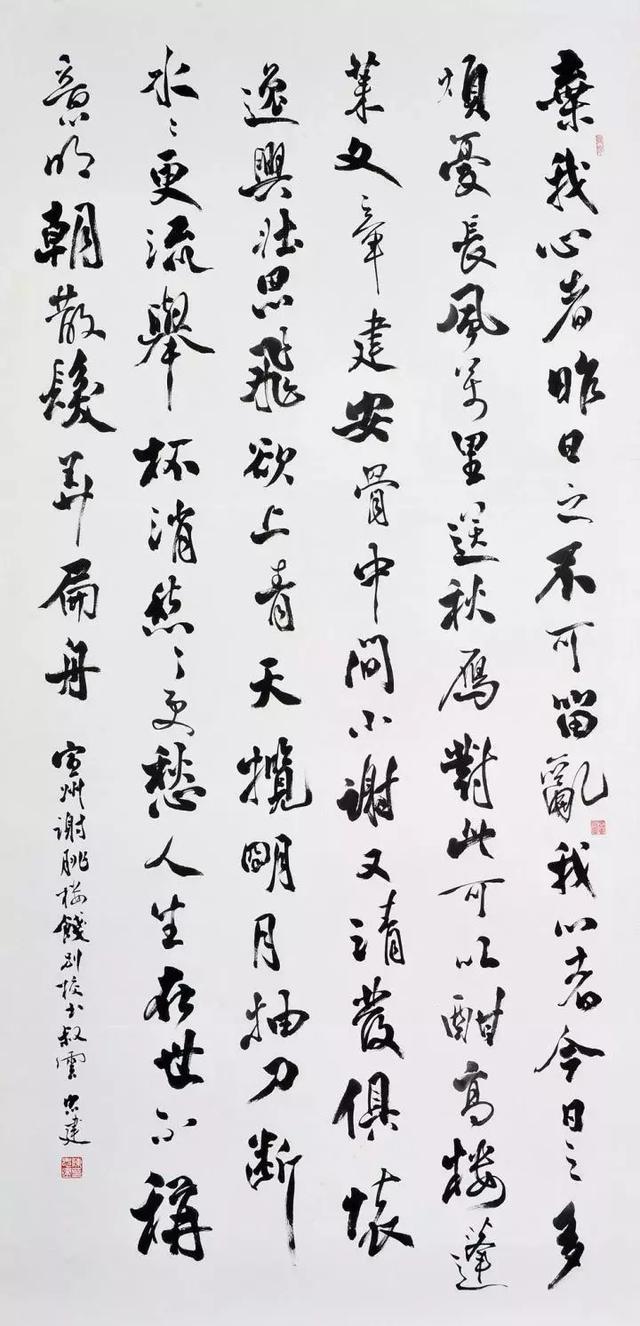 棄我心者昨日之不可留亂我心者今日之多
煩憂長風萬里送秋雁對此可以酣高樓蓬
萊文章建安骨中間小謝又清發俱懷
逸興壯思飛欲上青天攬明月抽刀斷
水〻更流舉杯消愁〻更愁人生在世不稱
意明朝散髮弄扁舟
宣州謝朓樓餞別校書叔雲 忠建